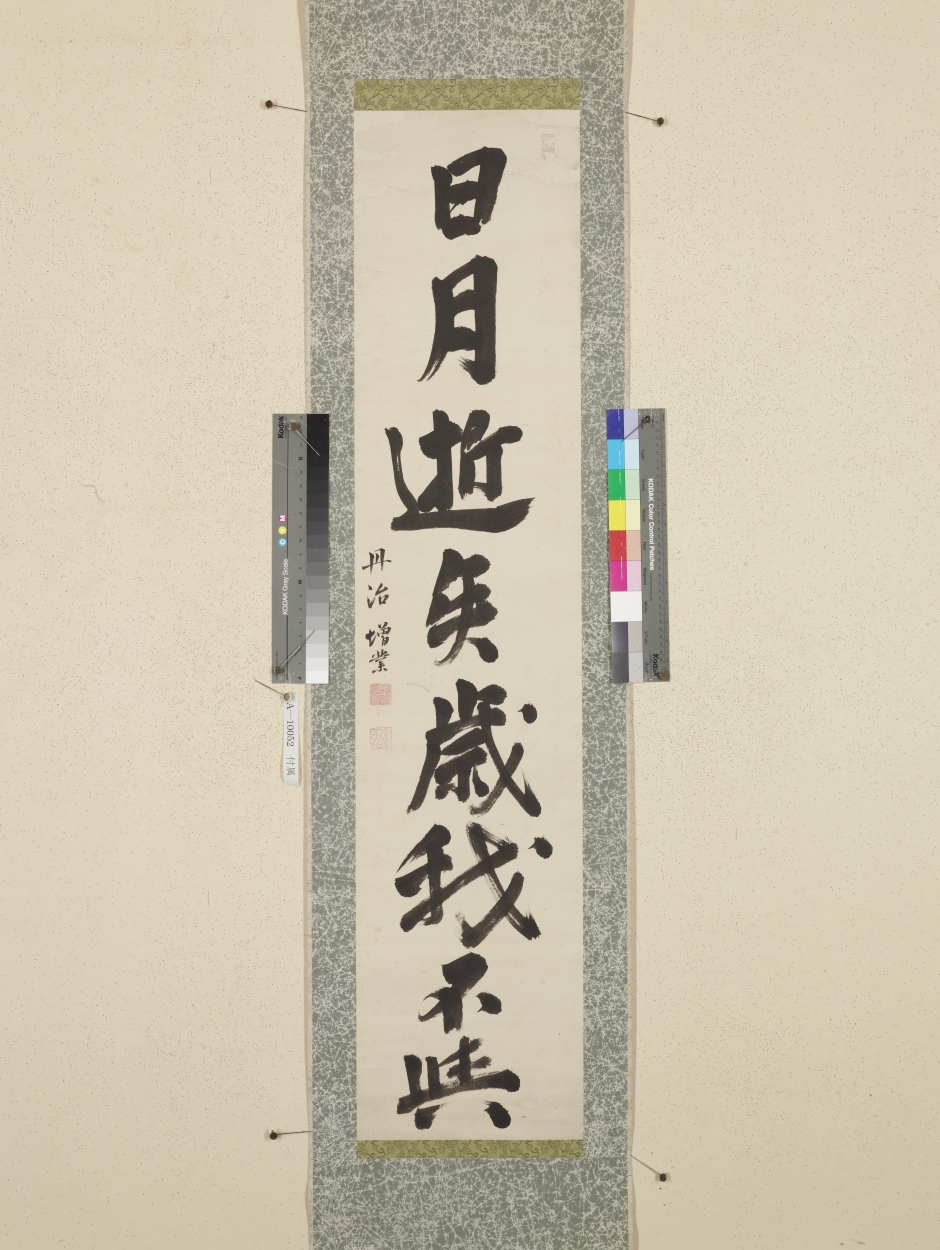 日月逝矣歳我不與
丹治増業
Kodak
KODAK Gray Scale
C Y M
KODAK Color Control Patches
Kodak
A—10052 付属